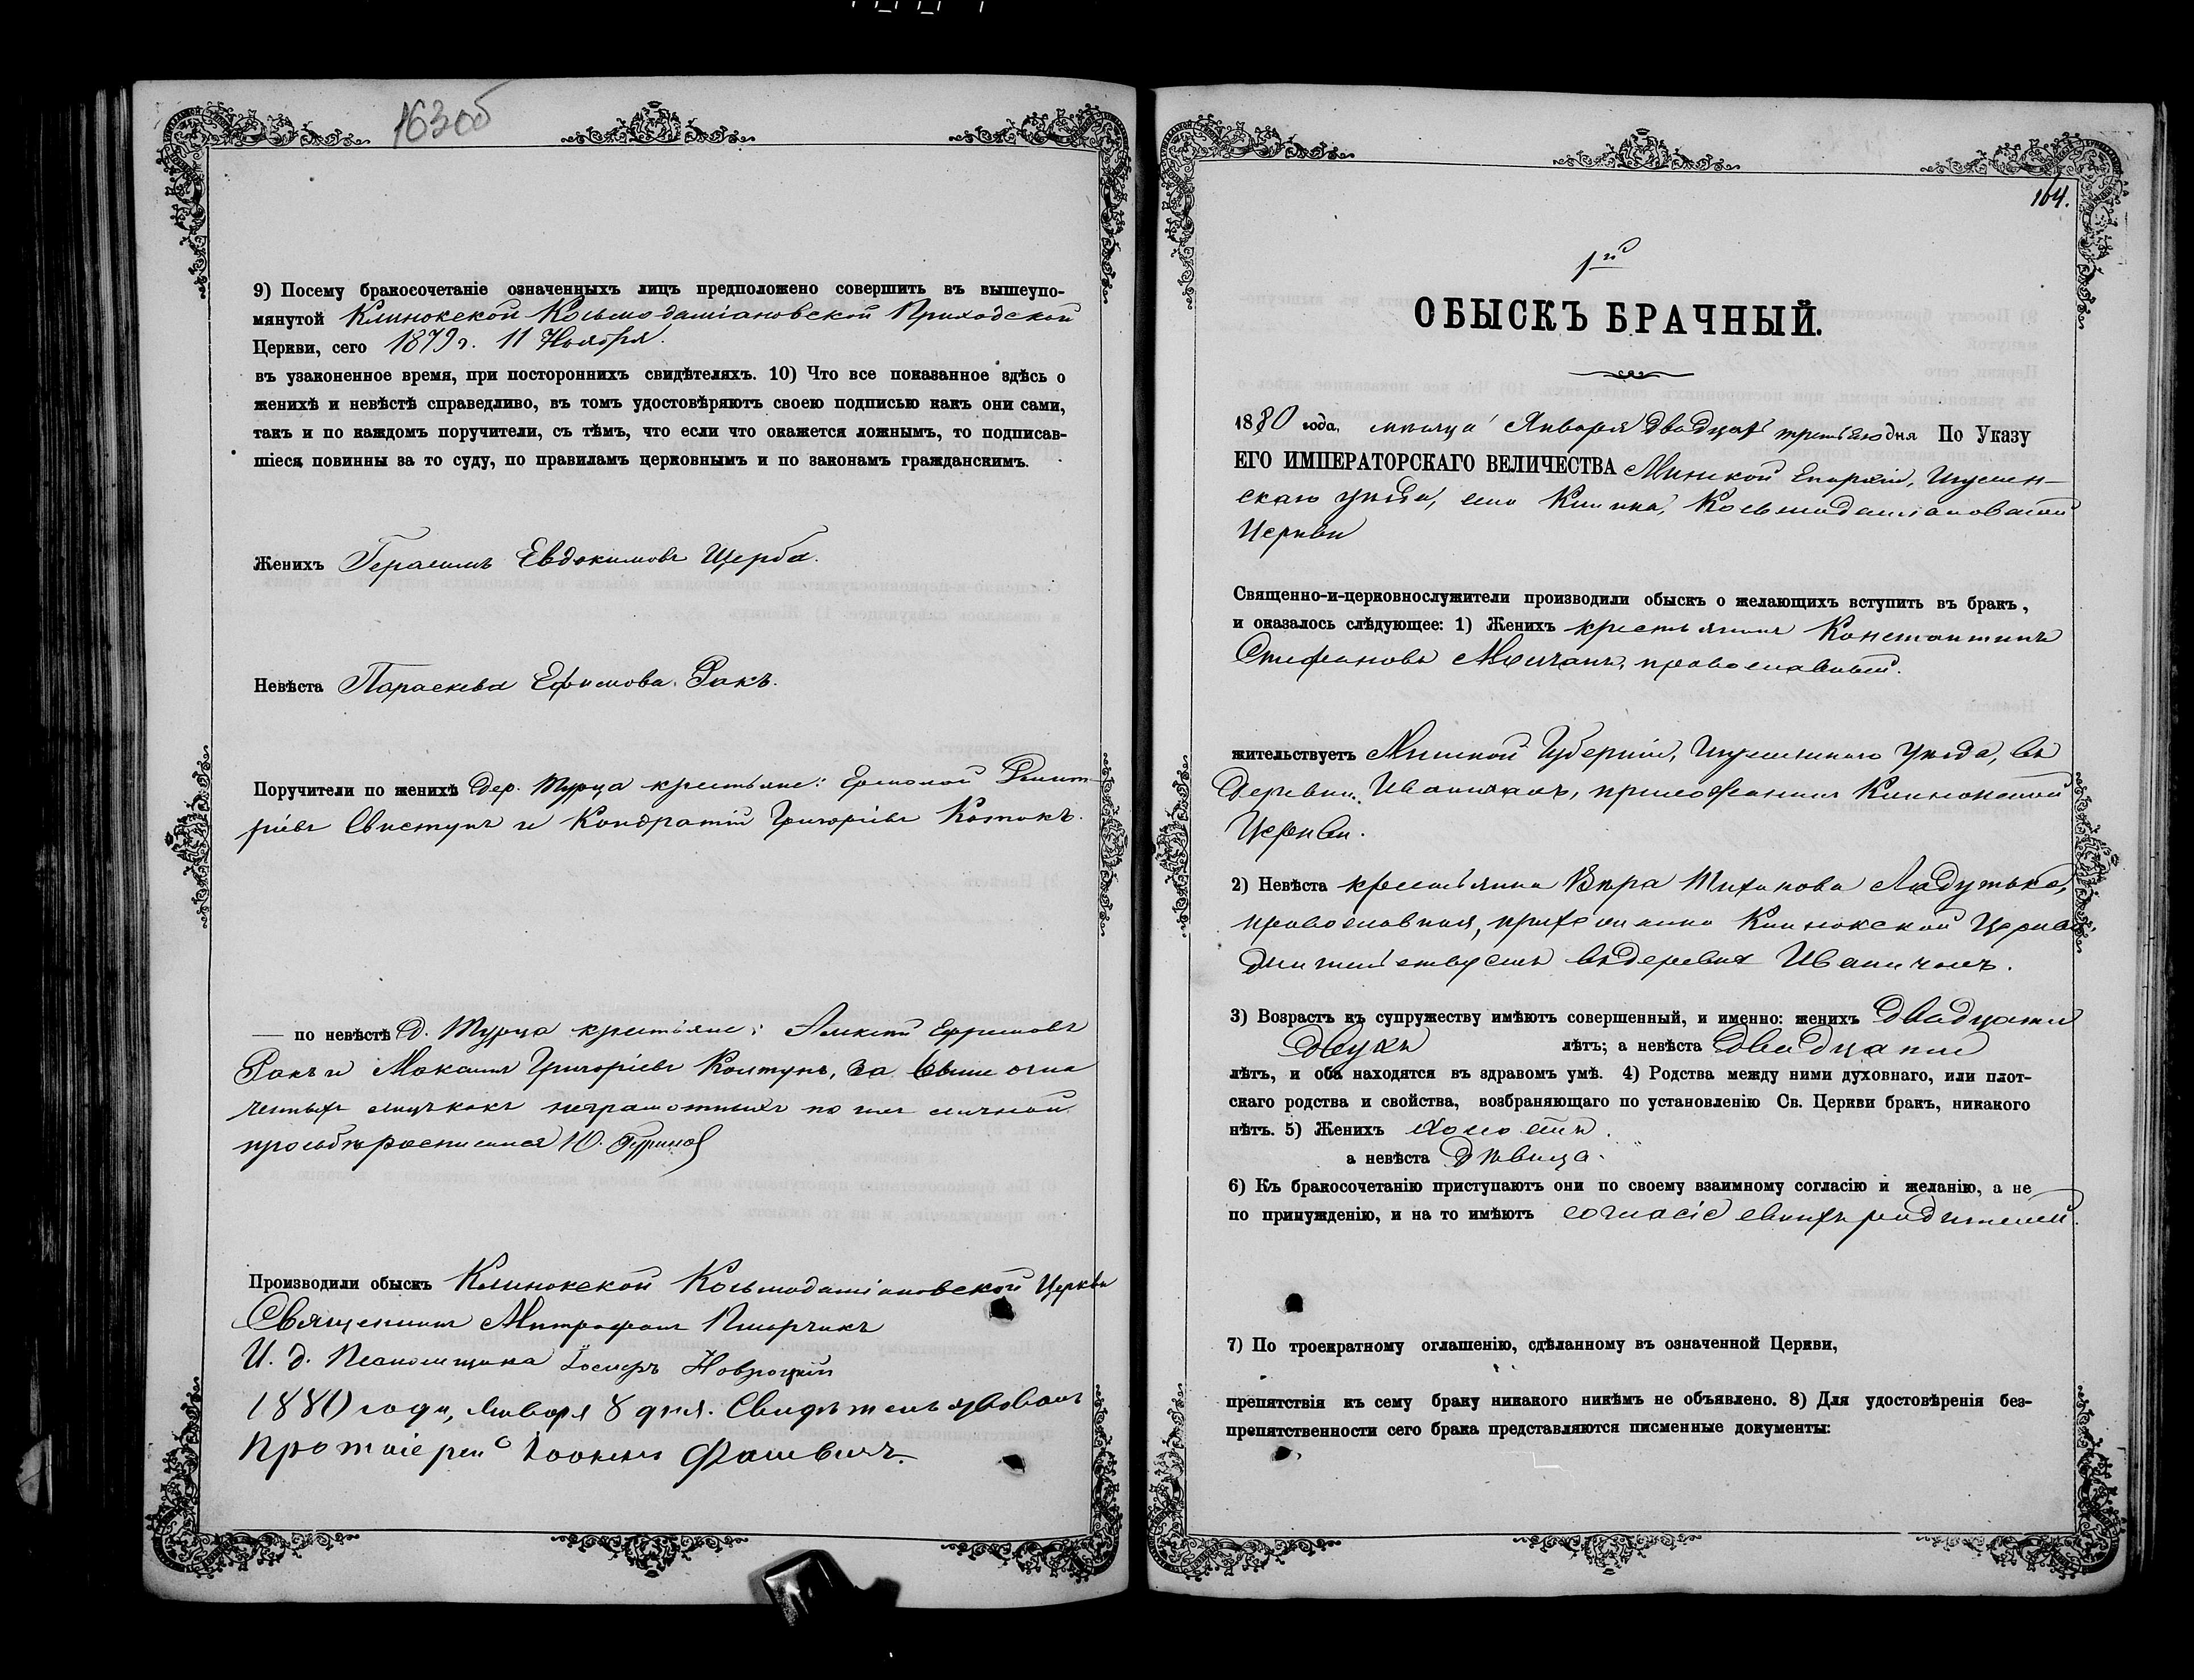 163об
9) Посему бракосочетаніе означенныхъ лицъ предположено совершить въ вышеупо-
мянутой Клинокской Косьмодаміановской Приходской
Церкви, сего 1879 г. 11 Ноября.
въ узаконенное время, при постороннихъ свидѣтеляхъ. 10) Что все показанное здѣсь о
женихѣ и невѣстѣ справедливо, въ томъ удостовѣряютъ своею подписью какъ они сами,
такъ и по каждомъ поручители, съ тѣмъ, что если что окажется ложнымъ, то подписав-
шіеся повинны за то суду, по правиламъ церковнымъ и по законамъ гражданскимъ.
Женихъ Герасимъ Евдокимовъ Щерба.
Невѣста Параскева Ефимова Ракъ.
Поручители по женихѣ дер. Турца крестьяне: Ермолай Дмит-
ріевъ Свистунъ и Кондратій Григоріевъ
— по невѣстѣ д. Турца крестьяне: Ефимовъ
Ракъ и Григоріевъ Колтунъ, за выше озна
ченныхъ лицъ какъ неграмотныхъ по ихъ личной
просьбѣ росписался Ю.
Производили обыскъ Клинокской Косьмодаміановской Церкви
Священникъ Митрофанъ
И. д. Псаломщика Іосифъ Новроцкій
1880 года, Января 8 дня. Свидѣтельствовалъ
Протоіерей Іоаннъ
164.
1й
ОБЫСКЪ БРАЧНЫЙ.
1880 года, мѣсяца Января двадцать третьяго дня По Указу
ЕГО ИМПЕРАТОРСКАГО ВЕЛИЧЕСТВА Минской Епархіи, Игумен-
скаго уѣзда, села Клинка, Косьмодаміановской
Церкви
Священно-и-церковнослужители производили обыскъ о желающихъ вступить въ бракъ,
и оказалось слѣдующее: 1) Женихъ крестьянинъ Константинъ
Стефановъ Молчанъ, православный.
жительствуетъ Минской Губерніи, Игуменскаго уѣзда, въ
деревни Иваничахъ, прихожанинъ Клинокской
Церкви.
2) Невѣста крестьянка Вѣра Тиханова Ладутько,
православная, прихожанка Клинокской Церкви,
жительствуетъ въ деревнѣ Иваничахъ.
3) Возрастъ къ супружеству имѣютъ совершенный, и именно: женихъ двадцати
двухъ лѣтъ; а невѣста двадцати
лѣтъ, и оба находятся въ здравомъ умѣ. 4) Родства между ними духовнаго, или плот-
скаго родства и свойства, возбраняющаго по установленію Св. Церкви бракъ, никакого
нѣтъ. 5) Женихъ холостъ.
а невѣста дѣвица.
6) Къ бракосочетанію приступаютъ они по своему взаимному согласію и желанію, а не
по принужденію, и на то имѣютъ согласіе своихъ родителей.
7) По троекратному оглашенію, сдѣланному въ означенной Церкви,
препятствія къ сему браку никакого никѣмъ не объявлено. 8) Для удостовѣренія без-
препятственности сего брака представляются писменные документы: